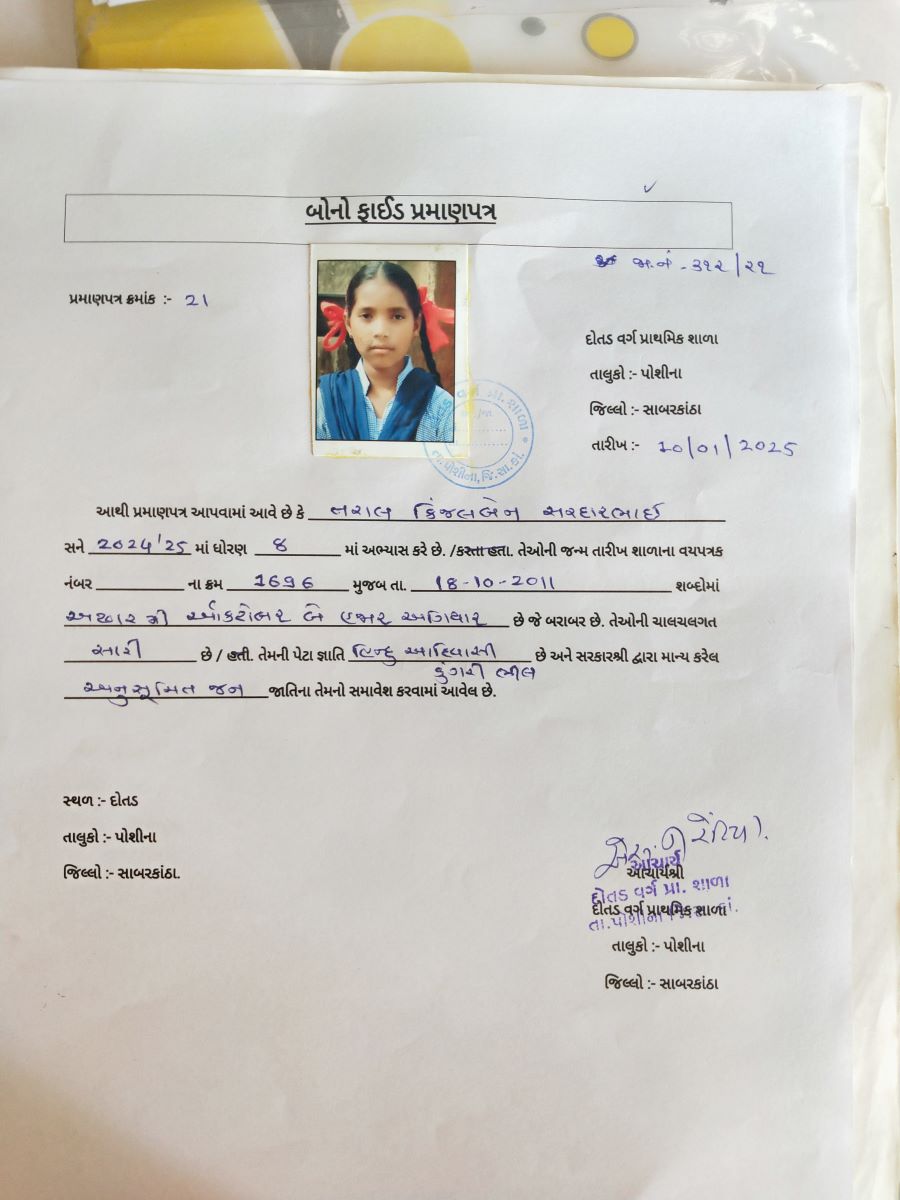 બોનો ફાઈડ પ્રમાણપત્ર
જા.નં - ૩૧૨/૨૧
પ્રમાણપત્ર ક્રમાંક :- 21
દોતડ વર્ગ પ્રાથમિક શાળા
તાલુકો :- પોશીના
જિલ્લો :- સાબરકાંઠા
તારીખ :- 20/01/2025
તા.પોશીના, જિ.સા.કાં.
આથી પ્રમાણપત્ર આપવામાં આવે છે કે તરાલ કિંજલબેન સરદારભાઈ
સને 2024'25 માં ધોરણ 8 માં અભ્યાસ કરે છે. /કરતા હતા. તેઓની જન્મ તારીખ શાળાના વયપત્રક
નંબર ના ક્રમ 1696 મુજબ તા. 18-10-2011 શબ્દોમાં
અઢાર મી ઓક્ટોબર બે હજાર અગિયાર છે જે બરાબર છે. તેઓની ચાલચલગત
સારી છે / હતી. તેમની પેટા જ્ઞાતિ હિન્દુ આદિવાસી છે અને સરકારશ્રી દ્વારા માન્ય કરેલ
ડુંગરી ભીલ
અનુસૂચિત જન જાતિના તેમનો સમાવેશ કરવામાં આવેલ છે.
સ્થળ :- દોતડ
તાલુકો :- પોશીના
જિલ્લો :- સાબરકાંઠા.
આચાર્ય
આચાર્યશ્રી
દોતડ વર્ગ પ્રા. શાળા
દોતડ વર્ગ પ્રાથમિક શાળા
તા.પોશીના
તાલુકો :- પોશીના
જિલ્લો :- સાબરકાંઠા